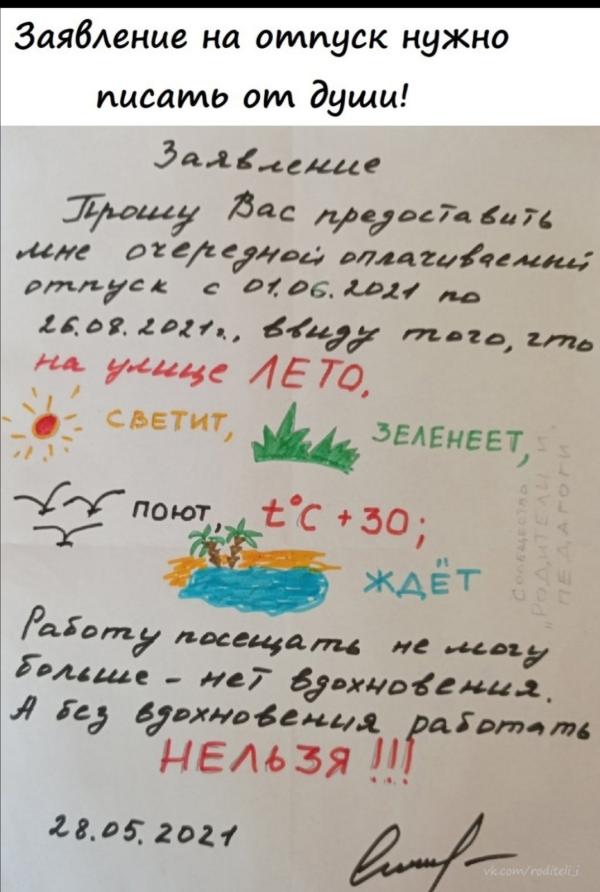 Заявление на отпуск нужно
писать от души!
Заявление
Прошу Вас предоставить
мне очередной оплачиваемый
отпуск с 01.06.2021 по
26.08.2021г., ввиду того, что
на улице ЛЕТО,
СВЕТИТ, ЗЕЛЕНЕЕТ,
ПОЮТ, t°C +30;
ЖДЁТ
Сообщество
"РОДИТЕЛИ И
ПЕДАГОГИ
Работу посещать не могу
больше - нет вдохновения.
А без вдохновения работать
НЕЛЬЗЯ !!!
28.05.2021
vk.com/roditeli_i